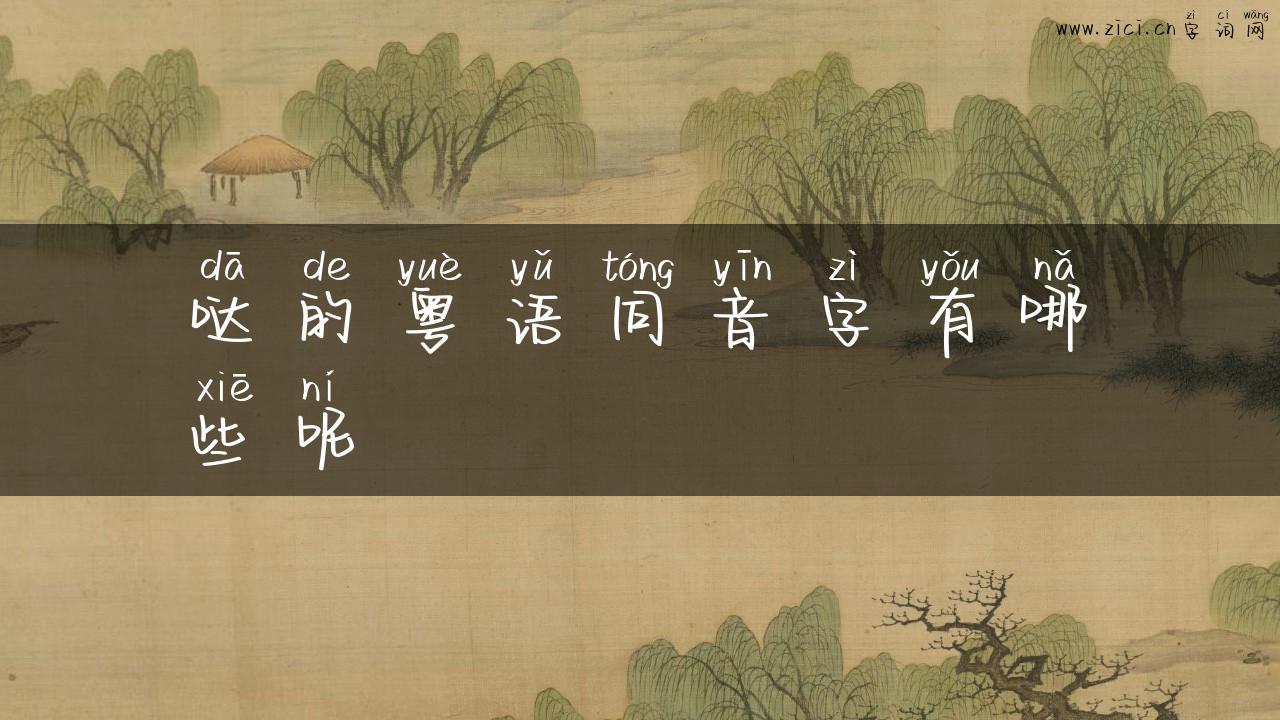 zì cí wǎng
www.zici.cn 字词网
dā de yuè yǔ tóng yīn zì yǒu nǎ
哒的粤语同音字有哪
xiē ní
些呢